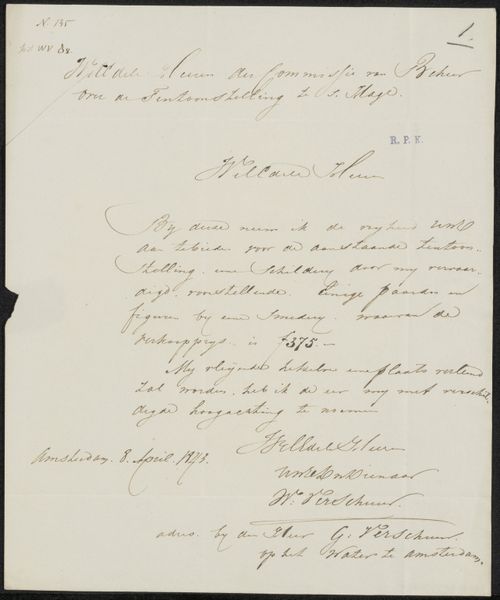 N. 135
1.
WelEdele Heeren der Commissie van Beheer
over de Tentoonstelling te s. Hage.
R. P. K.
WelEdele Heeren
By deese neem ik de vryheid UWE
aan tebieden voor de aanstaande tentoon-
stelling. eene Schildery door my vervaar-
digd. voorstellende. Eenige paarden en
figuren by eene Smedery. waarvan de
verkoopprys. is f375.-
My vleijende hetzelve eene plaats verleend
zal worden, heb ik de eer my met verschul-
digde hoogachting te noemen
WelEdele Heeren
Amsterdam. 8. April. 184
UWED Dienaar
W. Verschuur.
adres. by den Heer G. Verschuur.
op het Water te Amsterdam.